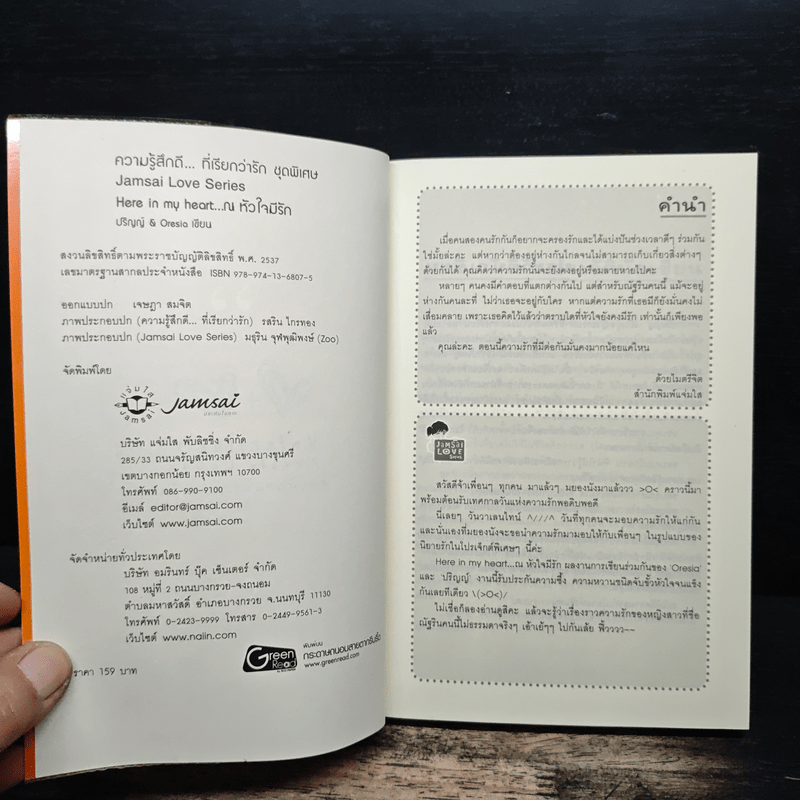 ความรู้สึกดี... ที่เรียกว่ารัก ชุดพิเศษ
Jamsai Love Series
Here in my heart...ณ หัวใจมีรัก
ปริญญ์ & Oresia เขียน
สงวนลิขสิทธิ์ตามพระราชบัญญัติลิขสิทธิ์ พ.ศ. 2537
เลขมาตรฐานสากลประจำหนังสือ ISBN 978-974-13-6807-5
ออกแบบปก เจษฎา สมจิต
ภาพประกอบปก (ความรู้สึกดี... ที่เรียกว่ารัก) รสริน ไกรทอง
ภาพประกอบปก (Jamsai Love Series) มธุริน จุฬพุฒิพงษ์ (Zoo)
จัดพิมพ์โดย
แจ่มใส
Jamsai
Jamsai
บริษัท แจ่มใส พับลิชชิ่ง จำกัด
285/33 ถนนจรัญสนิทวงศ์ แขวงบางขุนศรี
เขตบางกอกน้อย กรุงเทพฯ 10700
โทรศัพท์ 086-990-9100
อีเมล์ editor@jamsai.com
เว็บไซต์ www.jamsai.com
จัดจำหน่ายทั่วประเทศโดย
บริษัท อมรินทร์ บุ๊ค เซ็นเตอร์ จำกัด
108 หมู่ที่ 2 ถนนบางกรวย-จงถนอม
ตำบลมหาสวัสดิ์ อำเภอบางกรวย จ.นนทบุรี 11130
โทรศัพท์ 0-2423-9999 โทรสาร 0-2449-9561-3
เว็บไซต์ www.naiin.com
Green Read
พิมพ์บน
กระดาษถนอมสายตากรีนรี้ด
www.greenread.com
ราคา 159 บาท
คำนำ
เมื่อคนสองคนรักกันก็อยากจะครองรักและได้แบ่งปันช่วงเวลาดีๆ ร่วมกัน
ใช่มั้ยล่ะคะ แต่หากว่าต้องอยู่ห่างกันไกลจนไม่สามารถเก็บเกี่ยวสิ่งต่างๆ
ด้วยกันได้ คุณคิดว่าความรักนั้นจะยังคงอยู่หรือมลายหายไปคะ
หลายๆ คนคงมีคำตอบที่แตกต่างกันไป แต่สำหรับณัฐรินคนนี้ แม้จะอยู่
ห่างกันคนละที่ ไม่ว่าเธอจะอยู่กับใคร หากแต่ความรักที่เธอมีก็ยังมั่นคงไม่
เสื่อมคลาย เพราะเธอคิดไว้แล้วว่าตราบใดที่หัวใจยังคงมีรัก เท่านั้นก็เพียงพอ
แล้ว
คุณล่ะคะ ตอนนี้ความรักที่มีต่อกันมั่นคงมากน้อยแค่ไหน
ด้วยไมตรีจิต
สำนักพิมพ์แจ่มใส
JAMSAI
LOVE
Series
สวัสดีจ้าเพื่อนๆ ทุกคน มาแล้วๆ มยองนังมาแล้ววว >O< คราวนี้มา
พร้อมต้อนรับเทศกาลวันแห่งความรักพอดิบพอดี
นี่เลยๆ วันวาเลนไทน์ ^///^ วันที่ทุกคนจะมอบความรักให้แก่กัน
และนั่นเองที่มยองนังจะขอนำความรักมามอบให้กับเพื่อนๆ ในรูปแบบของ
นิยายรักในโปรเจ็กต์พิเศษๆ นี้ค่ะ
Here in my heart...ณ หัวใจมีรัก ผลงานการเขียนร่วมกันของ 'Oresia'
และ 'ปริญญ์' งานนี้รับประกันความซึ้ง ความหวานชนิดจับขั้วหัวใจจนแข็ง
กันเลยทีเดียว \(>O<)/
ไม่เชื่อก็ลองอ่านดูสิคะ แล้วจะรู้ว่าเรื่องราวความรักของหญิงสาวที่ชื่อ
ณัฐรินคนนี้ไม่ธรรมดาจริงๆ เอ้าเย้ๆๆ ไปกันเล้ย ฟิ้วววว~~